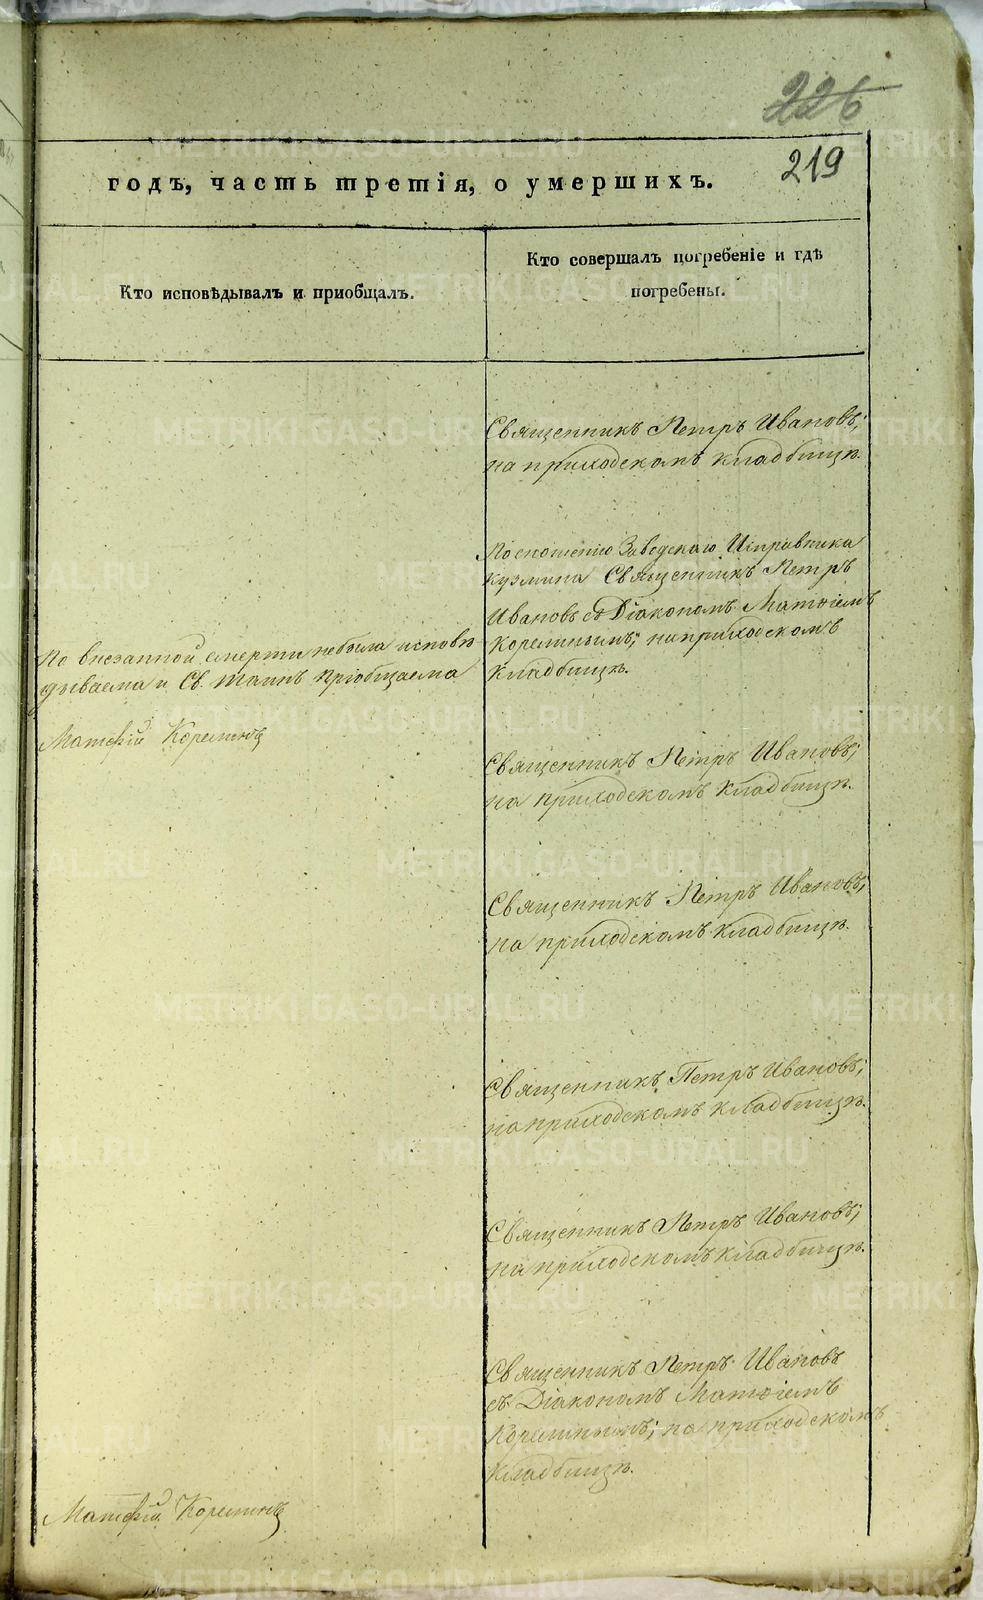 226
219
годъ, часть третія, о умершихъ.
Кто исповѣдывалъ и приобщалъ.
Кто совершалъ погребеніе и гдѣ
погребены.
Священникъ Петръ Ивановъ;
на приходскомъ кладбищѣ.
По сношенію Заводскаго Исправника
Кузмина Священникъ Петръ
Ивановъ съ Діакономъ Матѳіемъ
на приходскомъ
кладбищѣ.
По внезапной смерти небыла исповѣ-
дываема и Св. Таинъ пріобщаема
Матфій
Священникъ Петръ Ивановъ;
на приходскомъ кладбищѣ.
Священникъ Петръ Ивановъ;
на приходскомъ кладбищѣ.
Священникъ Петръ Ивановъ;
на приходскомъ кладбищѣ.
Священникъ Петръ Ивановъ;
на приходскомъ кладбищѣ.
Священникъ Петръ Ивановъ
съ Діакономъ Матѳіемъ
на приходскомъ
кладбищѣ.
Матфій
METRIKI.GASO-URAL.RU